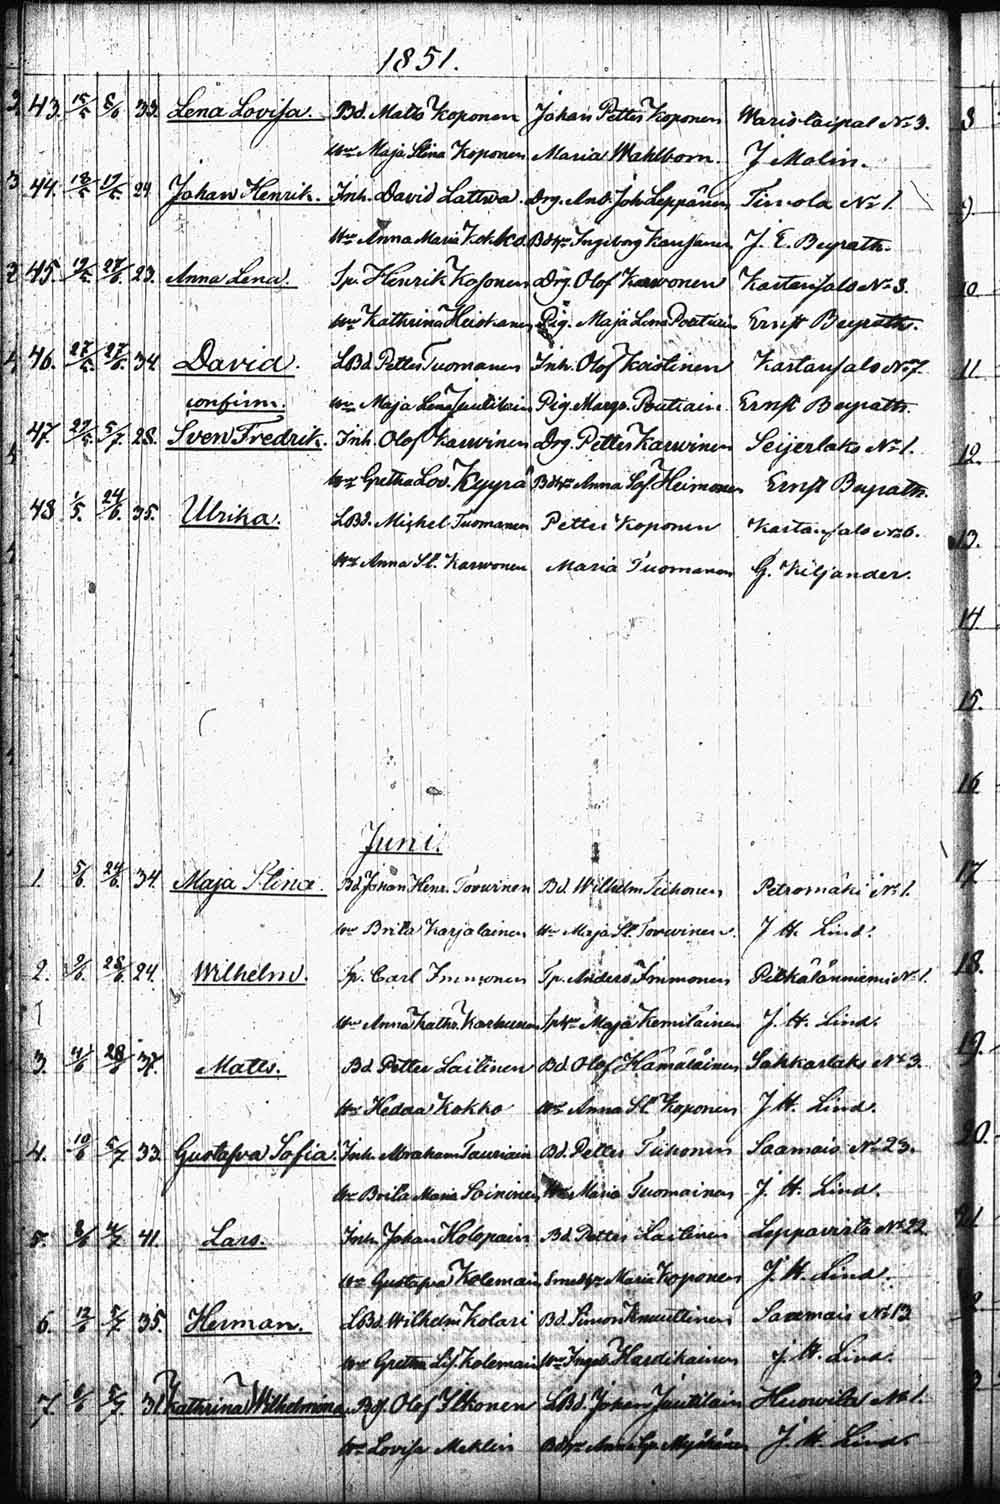 1851.
43. 15/5 8/6 33. Lena Lovisa. Bd. Matts Koponen Johan Petter Koponen Waristaipal No 3.
Hr Maja Stina Koponen Maria Wahlborn. J Molin.
44. 13/5 17/5 24 Johan Henrik. Inh. David Lattwa. Drg. And. Joh Leppänen Timola No 1.
Hr Anna Maria Kokko. Bdhr Ingeborg J. E. Beyrath.
45. 23. Anna Lena. Sp. Henrik Kosonen Drg. Olof Karwonen Kartansalo No 8.
Hr Kathrina Heiskanen Pig. Maja Lena Poutiain Ernst Beyrath.
46. 27/5 34 David. LBd Petter Tuomanen Inh. Olof Koistinen Kartansalo No 7
confirm. Hr Maja Lena Juutilain Pig. Margr. Poutiain. Ernst Beyrath.
47. 27/5 5/7 28. Sven Fredrik. Inh. Olof Karwinen Drg. Petter Karwinen Seijerlaks No 1.
Hr Gretha Lov. Kyyrä Bdhr Anna Sof. Heimonen Ernst Beyrath.
48 1/5. 24/6. 35. Ulrika. LBd. Michel Tuomanen Petter Koponen Kartansalo No 6.
Hr Anna St. Karwonen Maria Tuomanen G. Kiljander.
Juni.
1. 5/6 24/6. 34. Maja Stina. Bd Johan Henr. Torwinen Bd. Wilhelm Tiihonen Petromäki No 1.
Hr Brita Karjalainen Hr Maja St. Torwinen. J H. Lind.
2. 28/6 24. Wilhelm. Sp. Carl Immonen Sp. Anders Immonen Pitkälänniemi No 1.
Hr Anna Kathr. Karhunen Sphr Maja Kemiläinen J. H. Lind.
3. 28/6 37. Matts. Bd Petter Laitinen Bd. Olof Hämäläinen Sakkarlaks No 3.
Hr Hedda Kokko Hr Anna St Koponen J H. Lind.
4. 10/6 5/7 33. Gustafva Sofia Inh. Abraham Tauriain Bd. Petter Tiihonen Saamais No 23.
Hr Brita Maria Soininen Hr Maria Tuomainen J. H. Lind.
5. 41. Lars. Inh. Johan Holopain Bd. Petter Laitinen Leppavirta No 22.
Hr Gustafva Kolemain Maria Koponen J. H. Lind.
6. 12/6 5/7 35. Herman. LBd. Wilhelm Kolari Bd. Simon Knuutinen Saamais No 13
Hr Gretha Lis. Kolemain Hr Ingeb Hardikainen J. H. Lind.
7. 5/7 31 Kathrina Wilhelmina. Bd. Olof Ilkonen LBd. Johan Juutilain Huowila No 1.
Hr Lovisa Meklin Bdhr Anna J. H. Lind.
8
9
10
11
12.
13.
14
15.
16
17
18.
19.
20.
21